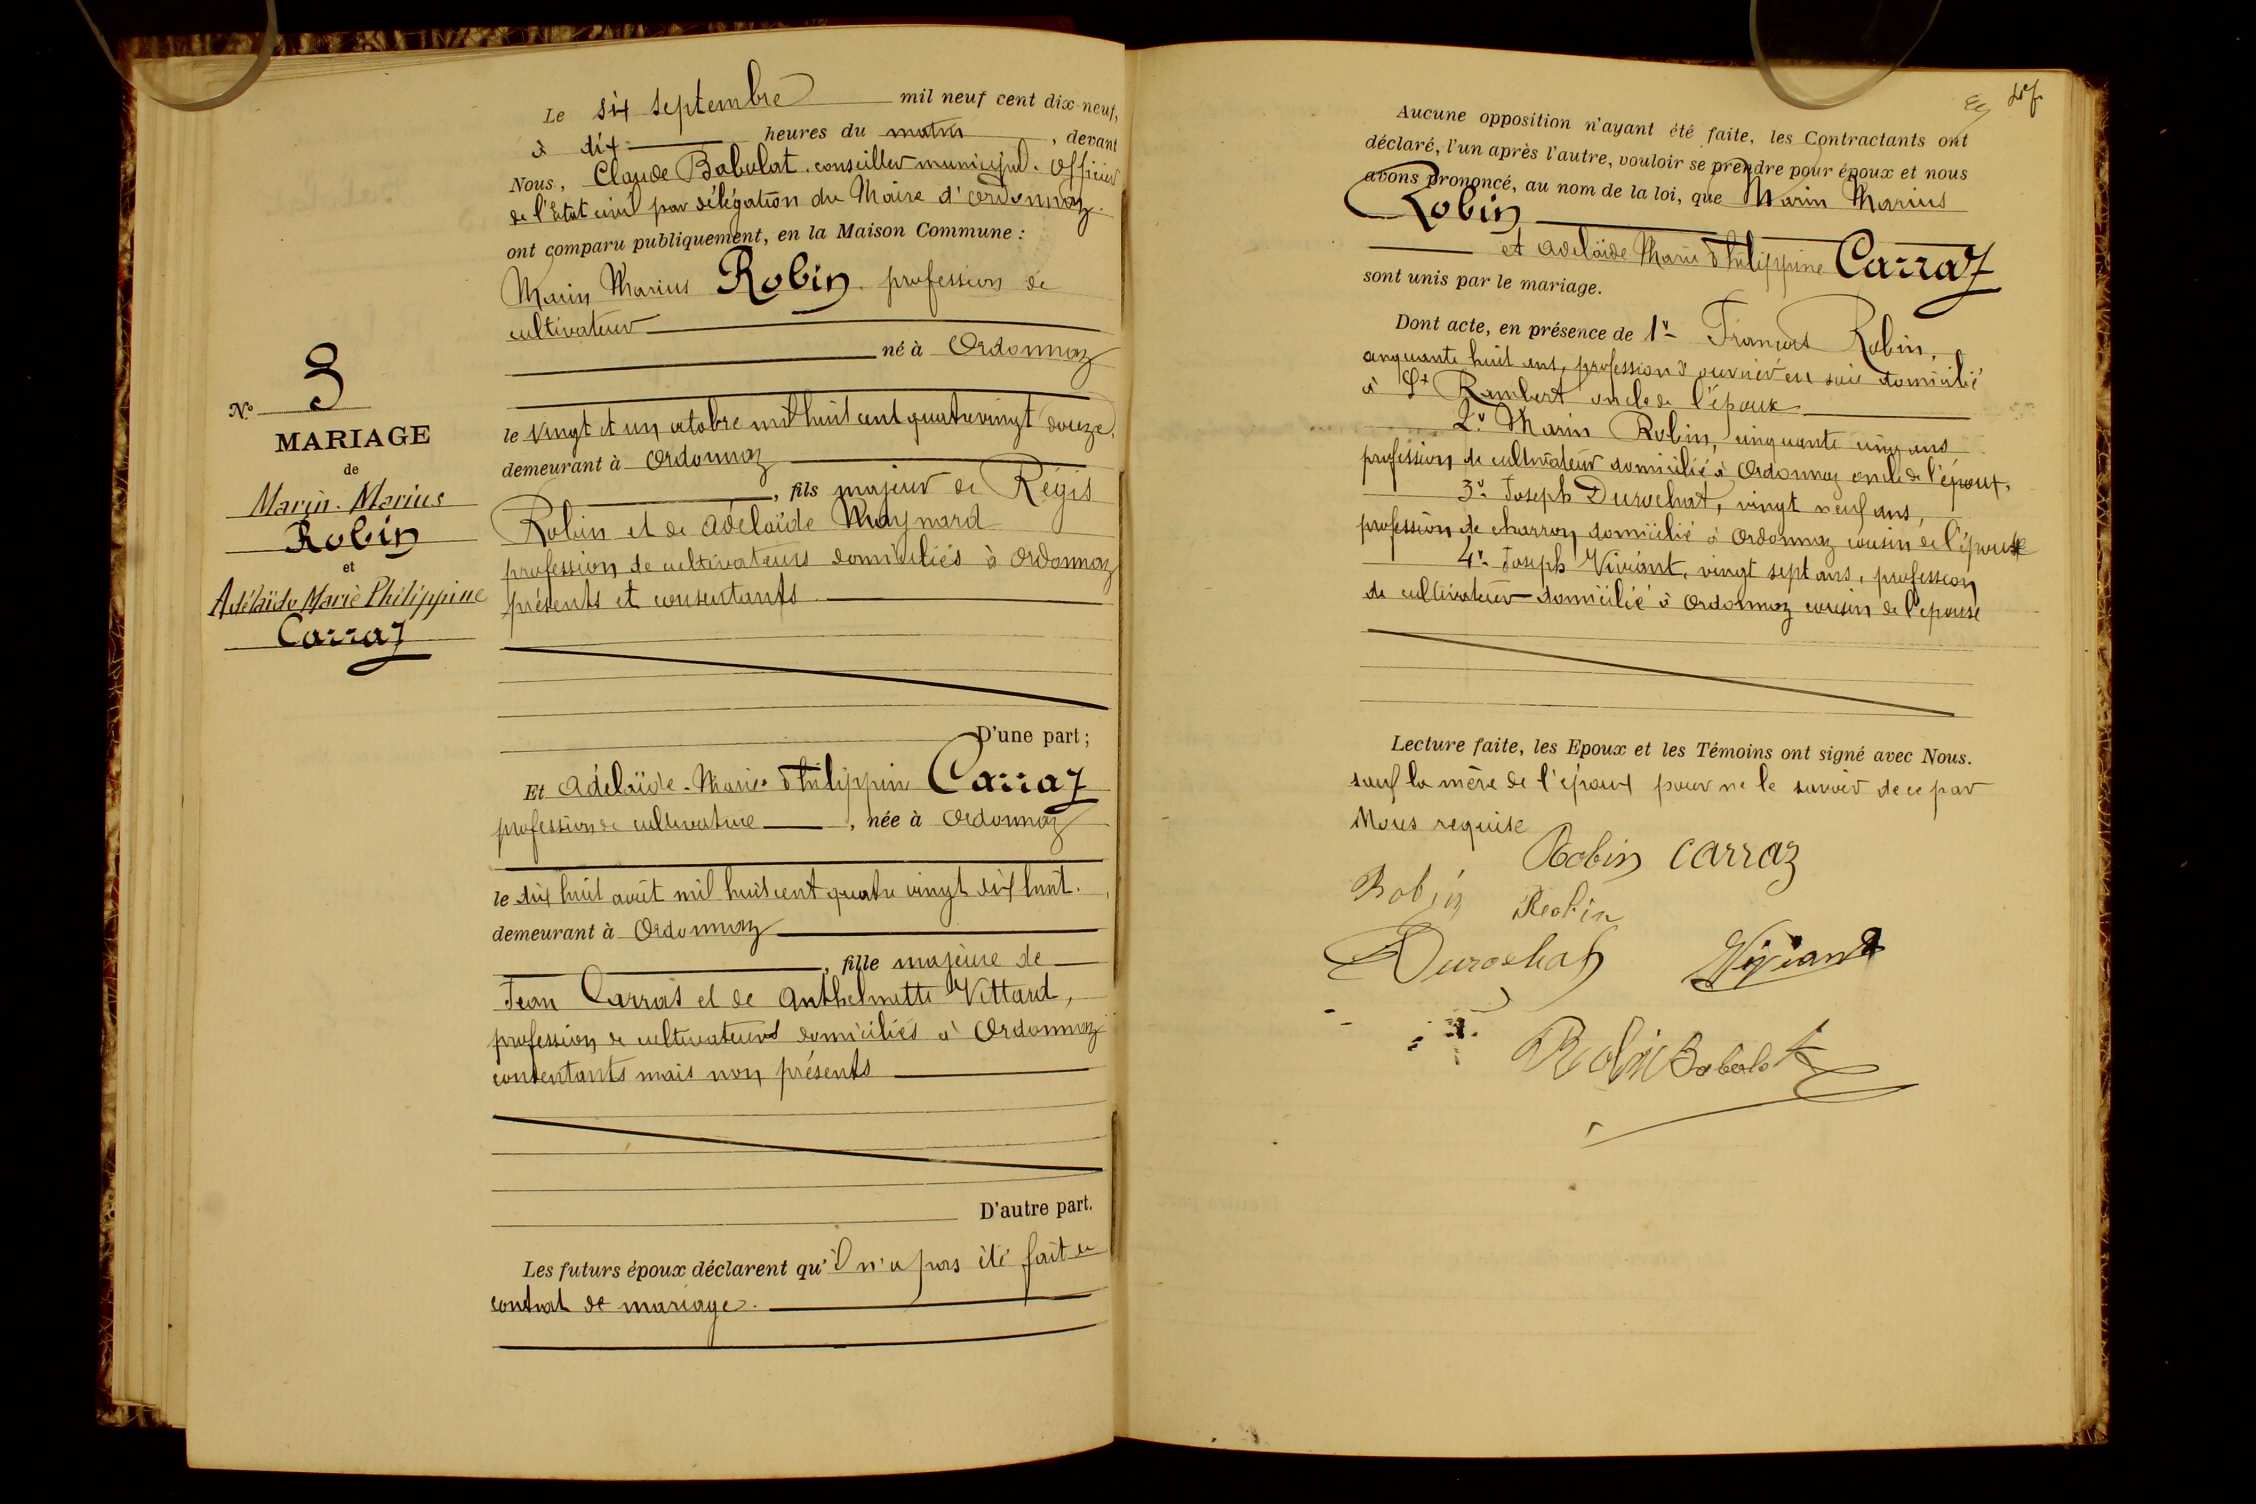 Le six septembre mil neuf cent dix-neuf,
à dix heures du matin, devant
Nous, Claude Babolat. conseiller municipal. officier
de l'Etat civil par délégation du Maire d'Ordonnaz.
ont comparu publiquement, en la Maison Commune :
Marin Marius Robin. profession de
cultivateur
né à Ordonnaz
le vingt et un octobre mil huit cent quatre vingt douze.
demeurant à Ordonnaz
, fils majeur de Régis
Robin et de Adélaïde Maynard
profession de cultivateurs domiciliés à Ordonnaz
présents et consentants
N° 3
MARIAGE
de
Marin-Marius
Robin
et
Adélaïde Marie Philippine
Carraz
D'une part ;
Et Adélaïde-Marie Philippine Carraz
profession de cultivatrice, née à Ordonnaz
le dix huit août mil huit cent quatre vingt dix huit.
demeurant à Ordonnaz
, fille majeure de
Jean Carraz et de Anthelmette Vettard,
profession de cultivateurs domiciliés à Ordonnaz
consentants mais non présents
D'autre part.
Les futurs époux déclarent qu'il n'a pas été fait de
contrat de mariage.
Aucune opposition n'ayant été faite, les Contractants ont
déclaré, l'un après l'autre, vouloir se prendre pour époux et nous
avons prononcé, au nom de la loi, que Marin Marius
Robin
et Adelaïde Marie Philippine Carraz
sont unis par le mariage.
Dont acte, en présence de 1° François Robin,
cinquante huit ans, profession d'ouvrier en soie domicilié
à St Rambert oncle de l'époux
2° Marin Robin, cinquante cinq ans
profession de cultivateur domicilié à Ordonnaz oncle de l'époux,
3° Joseph Durochat, vingt neuf ans,
profession de charron domicilié à Ordonnaz cousin de l'épouse
4° Joseph Viviant, vingt sept ans, profession
de cultivateur domicilié à Ordonnaz cousin de l'epouse
Lecture faite, les Epoux et les Témoins ont signé avec Nous.
sauf la mère de l'époux pour ne le savoir de ce par
Nous requise
Robin Carraz
Robin Robin
Durochat Viviant
Robin Babolat